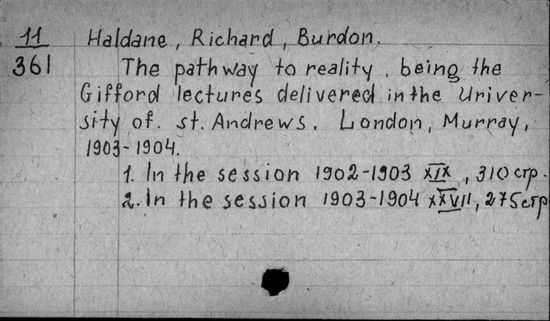 11 Haldane, Richard, Burdon.
361 The pathway to reality, being the
Gifford lectures delivered in the Univer-
sity of. st. Andrews. London, Murray,
1903-1904.
1. In the session 1902-1903 XIX, 310 стр.
2. In the session 1903-1904 XXVII, 275 стр